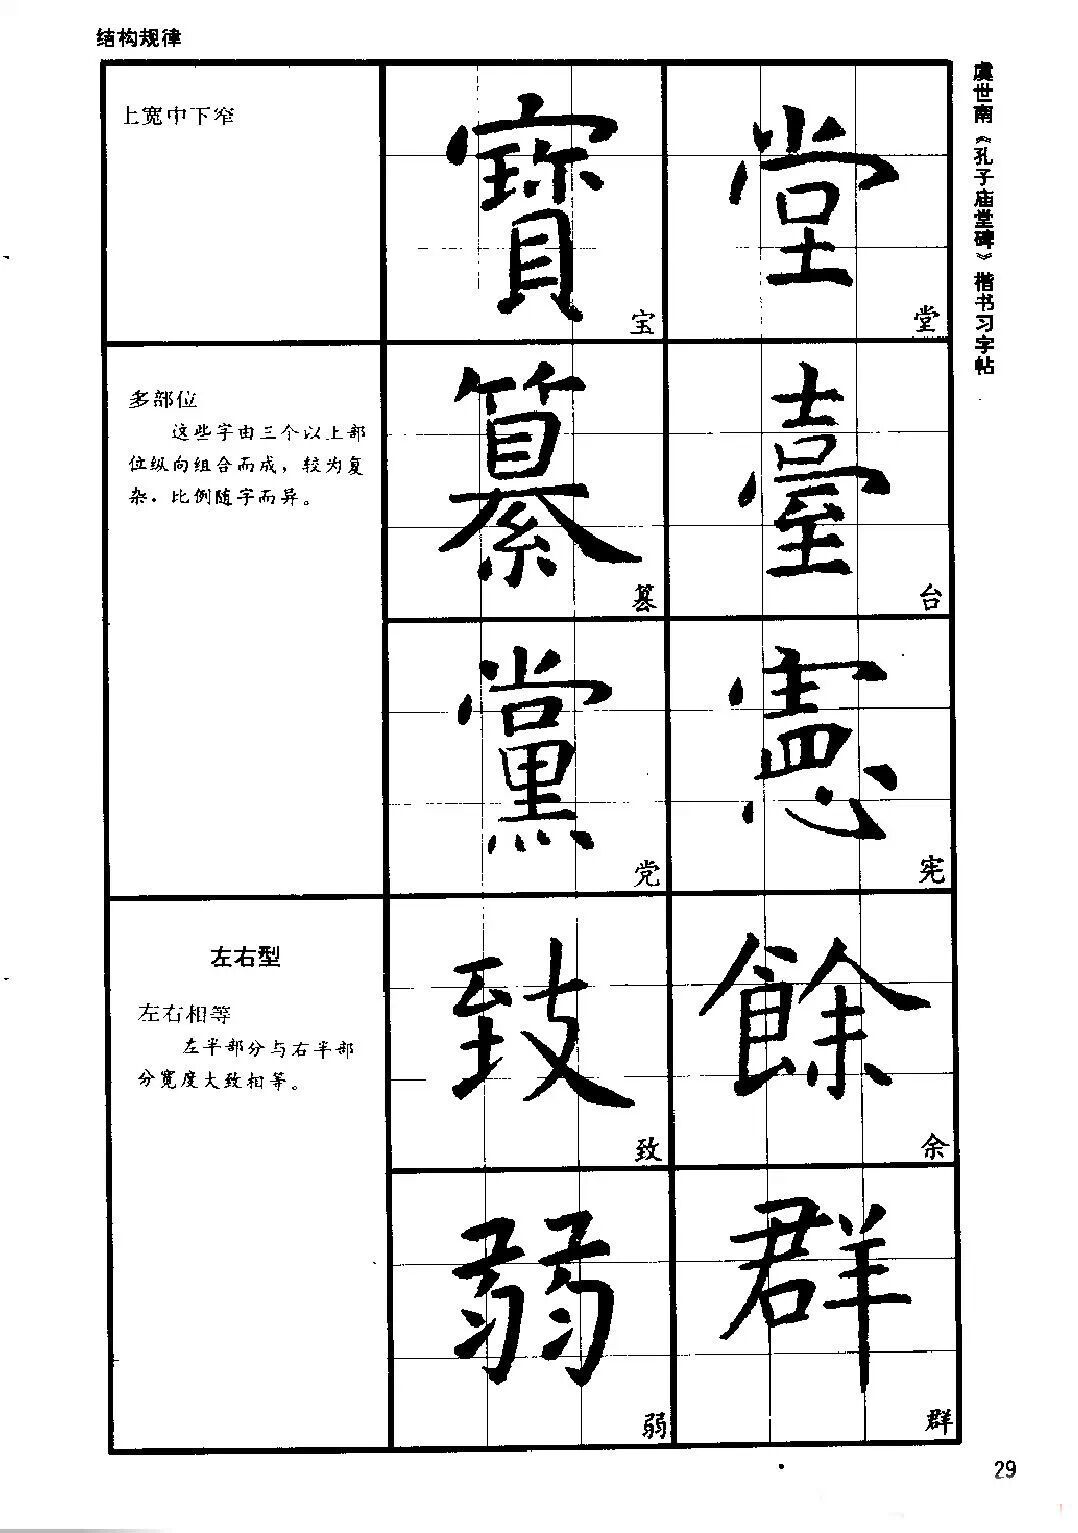 结构规律
虞世南《孔子庙堂碑》楷书习字帖
上宽中下窄
寶
宝
堂
堂
多部位
这些字由三个以上部
位纵向组合而成，较为复
杂，比例随字而异。
纂
纂
臺
台
黨
党
憲
宪
左右型
左右相等
左半部分与右半部
分宽度大致相等。
致
致
餘
余
弱
弱
群
群
29